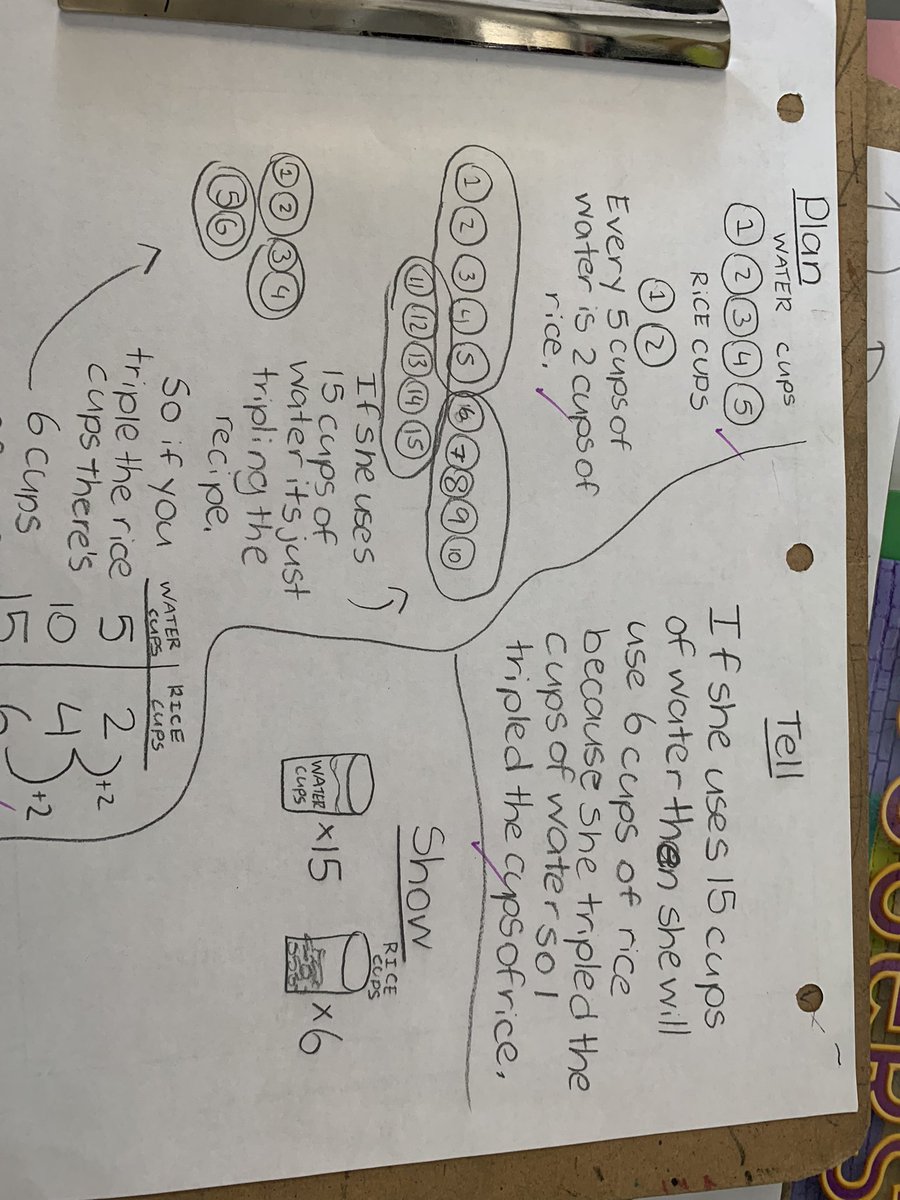 Plan
WATER cups
1 2 3 4 5
RICE CUPS
1 2
Every 5 cups of
water is 2 cups of
rice.
1 2 3 4 5 6 7 8 9 10
11 12 13 14 15
If she uses
15 cups of
water its just
tripling the
recipe.
1 2 3 4
5 6
So if you
triple the rice
cups there's
6 cups
WATER CUPS | RICE CUPS
5 2
+2
10 4
+2
15 6
Tell
If she uses 15 cups
of water then she will
use 6 cups of rice
because she tripled the
cups of water so I
tripled the cups of rice.
Show
WATER CUPS x15
RICE CUPS x6